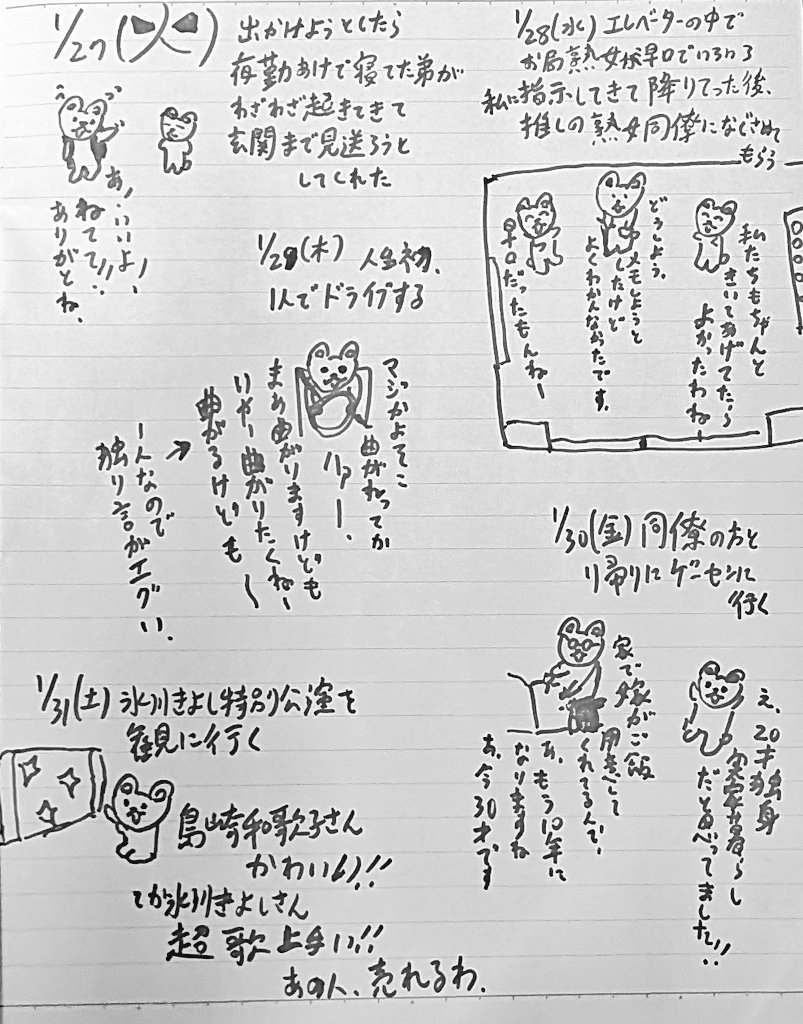 1/27(火)
出かけようとしたら
夜勤あけで寝てた弟が
わざわざ起きてきて
玄関まで見送ろうと
してくれた
あ、いいよ、
ねてて!!
ありがとね、
1/28(水) エレベーターの中で
お局熟女が早口でいろいろ
私に指示してきて降りてった後、
推しの熟女同僚になぐさめて
もらう
私たちもちゃんと
きいてあげてたら
よかったわねー
どうしよう、
メモしようと
したけど
よくわかんなかったです。
早口だったもんねー
1/29(木) 人生初、
1人でドライブする
マジかよそこ
曲がれってか
ハァー、
まあ曲がりますけども
いやー曲がりたくねー
曲がるけどもー
→
こんなので
独り言がエグい、
1/30(金) 同僚の方と
帰りにゲーセンに
行く
え、20才独身
実家暮らし
だと思ってました!!
家で嫁がご飯
用意して
くれてるんで、
あ、もう10年に
なりますね
あ、今30才です
1/31(土) 氷川きよし特別公演を
観に行く
島崎和歌子さん
かわいい!!
てか氷川きよしさん
超歌上手い!!
あの人、売れるわ、